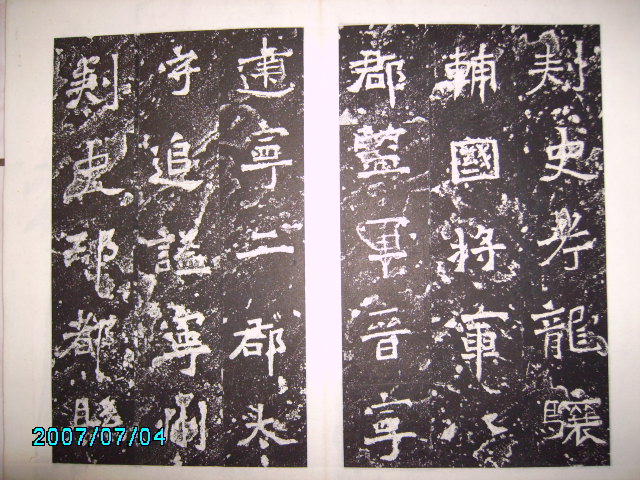 刺史考龍驤
輔國將軍八
郡監軍晉寧
建寧二郡太
守追諡寧州
刺史邛都縣
2007/07/04